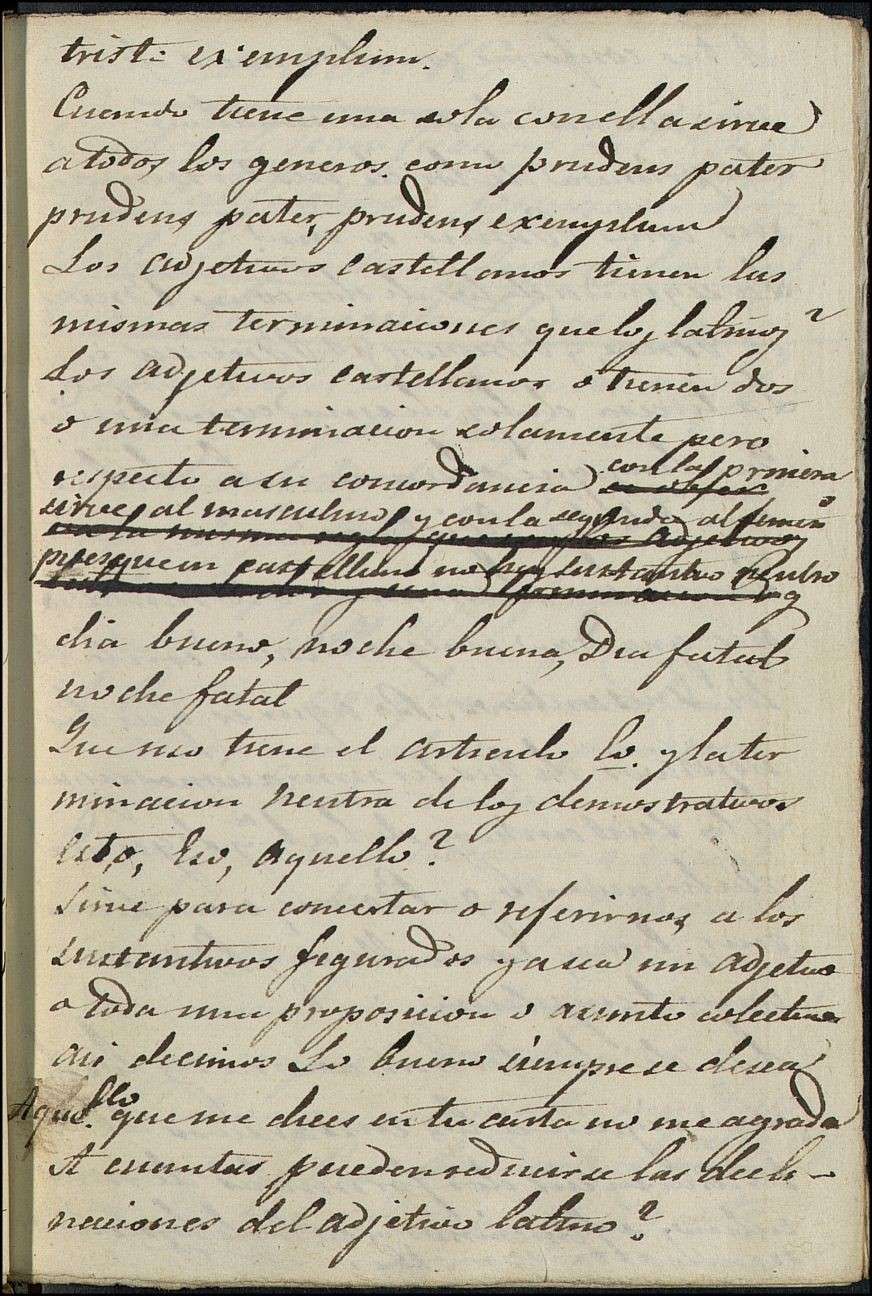 triste exemplum.
Cuando tiene una sola con ella sirve
a todos los generos. como prudens pater
prudens pater, prudens exemplum
Los adjetivos castellanos tienen las
mismas terminaciones que los latinos?
Los adjetivos castellanos o tienen dos
o una terminacion solamente pero
respecto a su concordancia con la primera
sirve al masculino, y con la segunda al femen
pues que en castellano no hay sustantivo neutro
dia bueno, noche buena, Dia fatal
noche fatal
Que uso tiene el articulo lo. y la ter
minacion neutra de los demostrativos
Esto, Eso, aquello?
Sirve para concertar o referirnos a los
sustantivos figurados ya sea un adjetivo
o toda una proposicion o asunto colectivo
asi decimos Lo bueno siempre se desea
Aquello que me dices en tu carta no me agrada
A cuantas pueden reducirse las decli-
naciones del adjetivo latino?